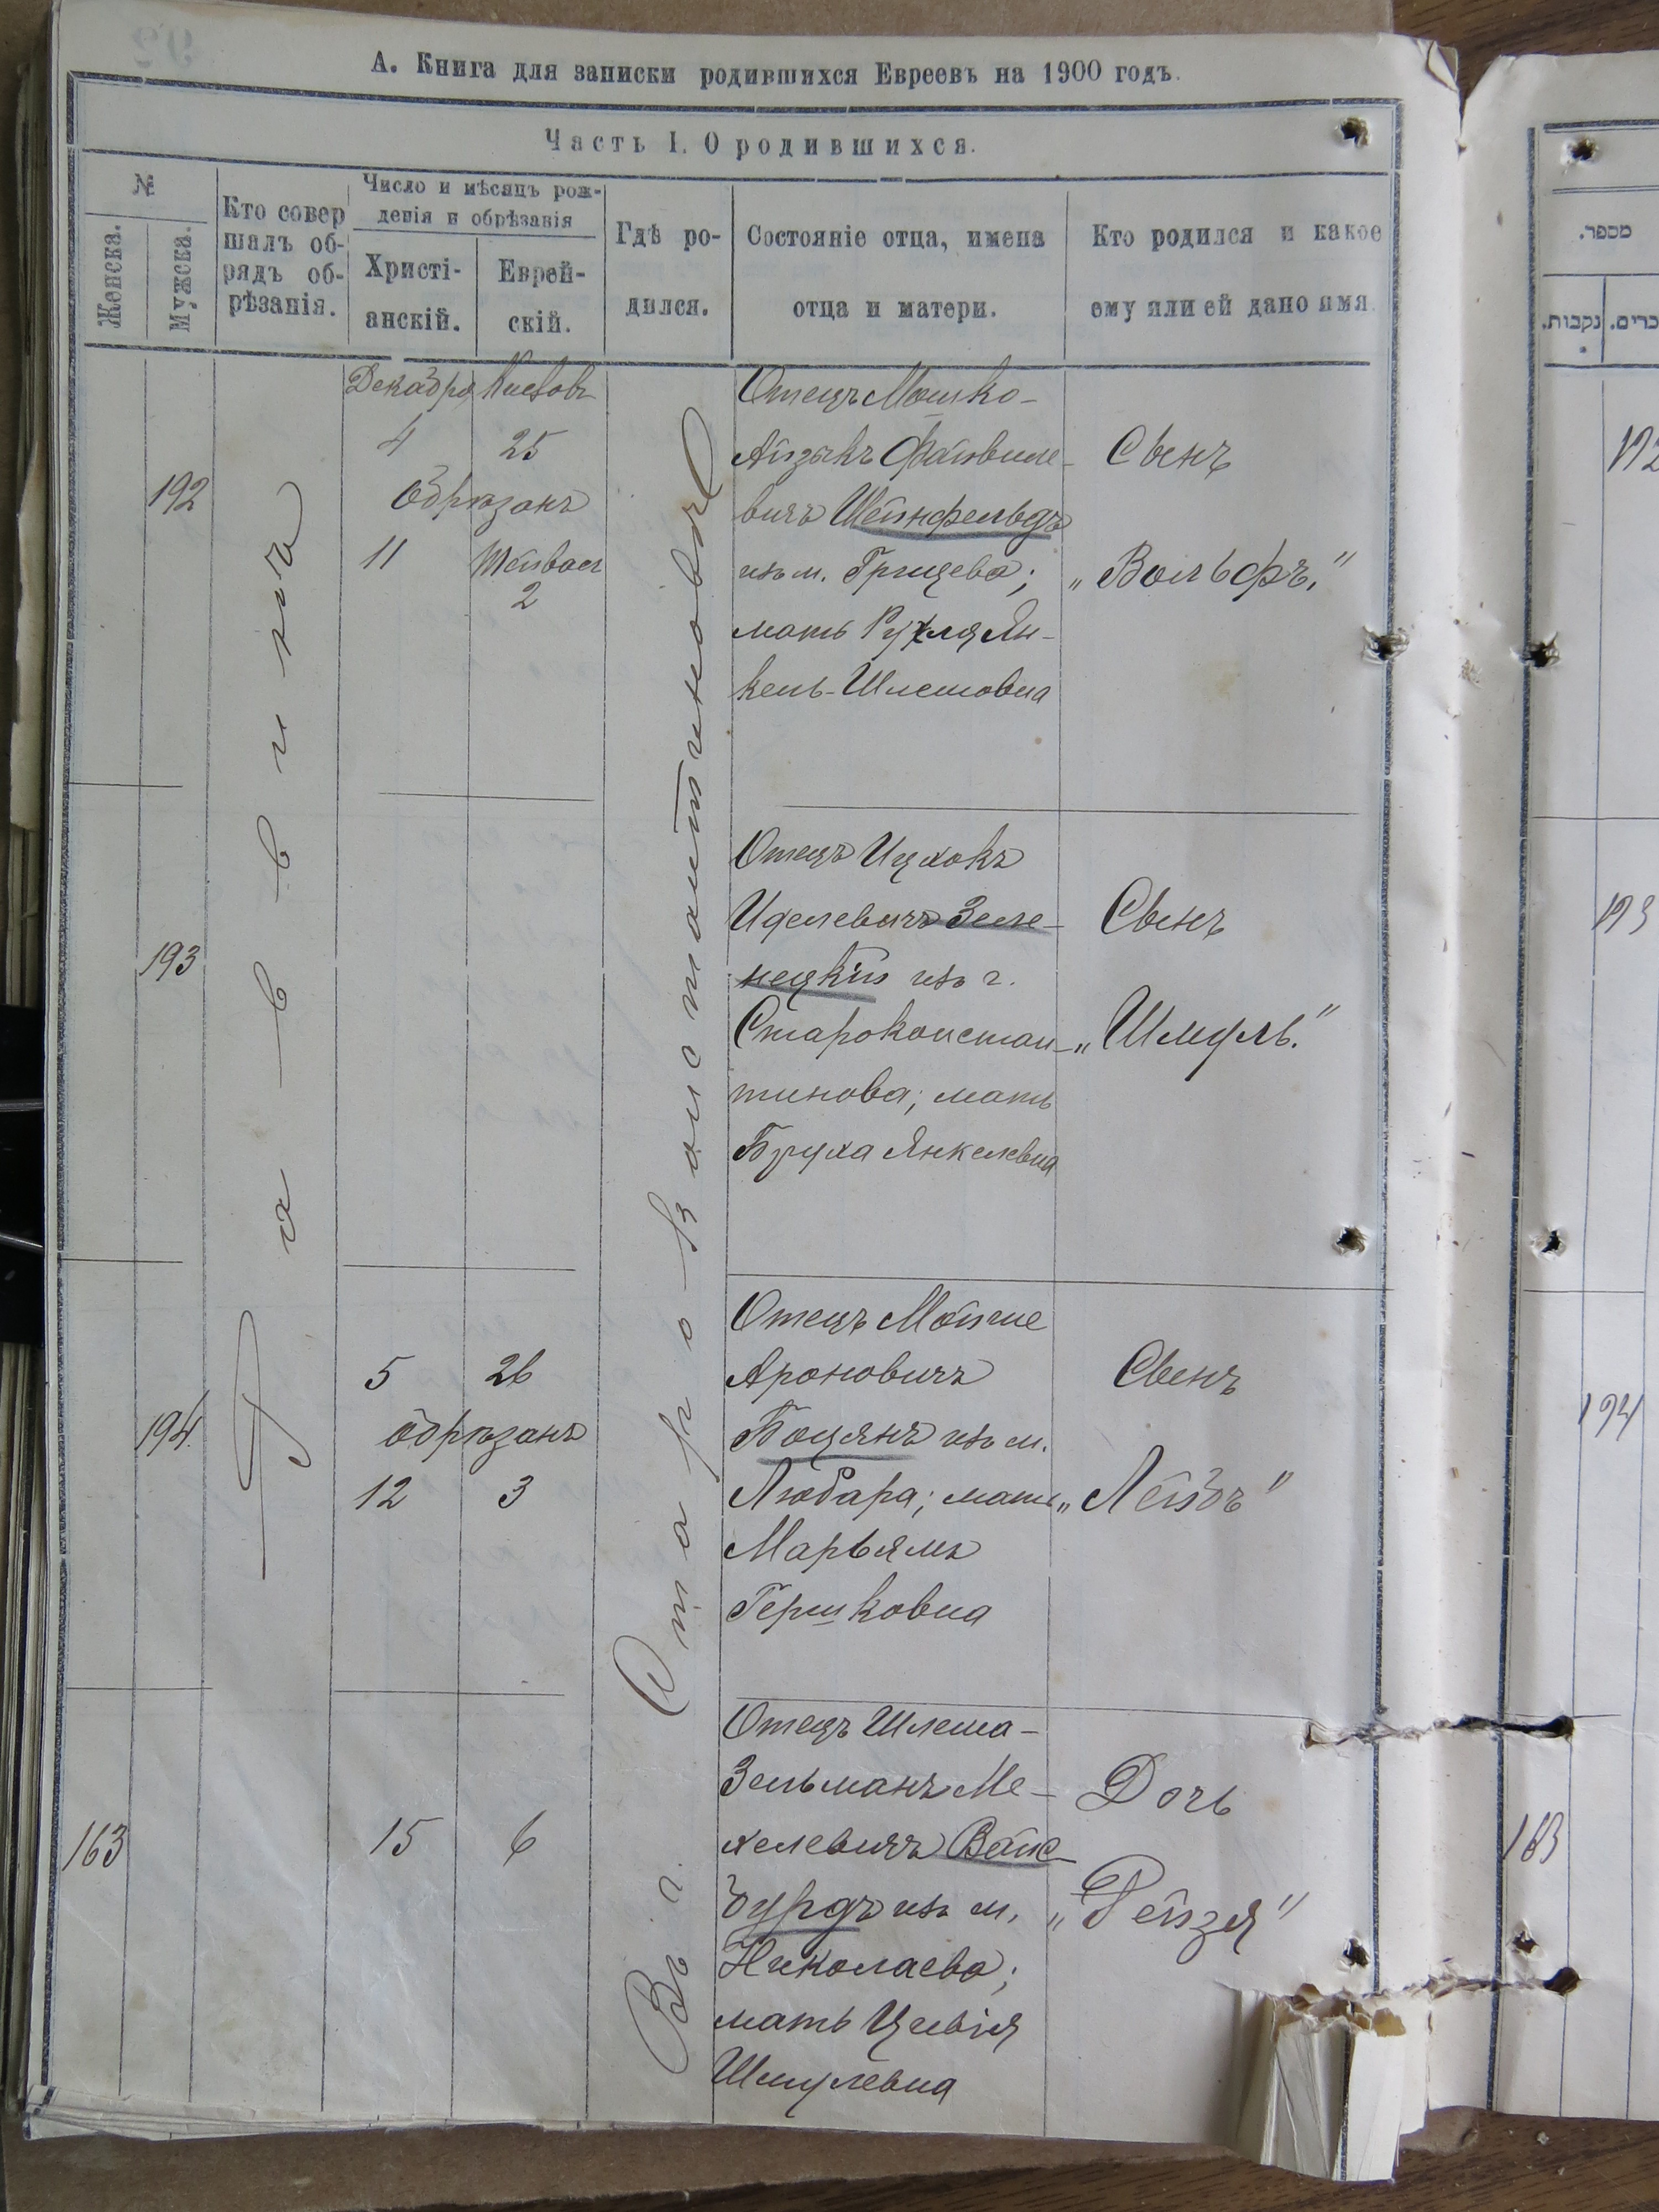 А. Книга для записки родившихся Евреевъ на 1900 годъ.
Часть I. О родившихся.
№
Женска.
Мужска.
Кто совер
шалъ об-
рядъ об-
рѣзанія.
Число и мѣсяцъ рож-
денія и обрѣзанія
Христі-
анскій.
Еврей-
скій.
Гдѣ ро-
дился.
Состояніе отца, имена
отца и матери.
Кто родился и какое
ему или ей дано имя.
Раввинъ
Въ г. Старо-Константиновѣ
192
Декабря Кислов
4 25
обрѣзанъ
11 Тейвас
2
Отецъ Мошко-
Айзикъ Файвиле-
вичъ Шейнфельдъ
изъ м. Грицева;
мать Рухля Ян-
кель-Шлемовна
Сынъ
„Вольфъ."
193
Отецъ Ицхокъ
Иделевичъ Зеле-
нецкій изъ г.
Староконстан-
тинова; мать
Бруха Янкелевна
Сынъ
„Шмуль."
194
5 26
обрѣзанъ
12 3
Отецъ Мойше
Ароновичъ
Боцянъ изъ м.
Любара; мать
Марьямъ
Гершковна
Сынъ
„Лейбъ"
163
15 6
Отецъ Шлема-
Зельманъ Ме-
хелевичъ Вайс-
бурдъ изъ м.
Николаева;
мать Цивія
Шмулевна
Дочь
„Рейзя"
מספר.
נקבות.
192
193
194
163